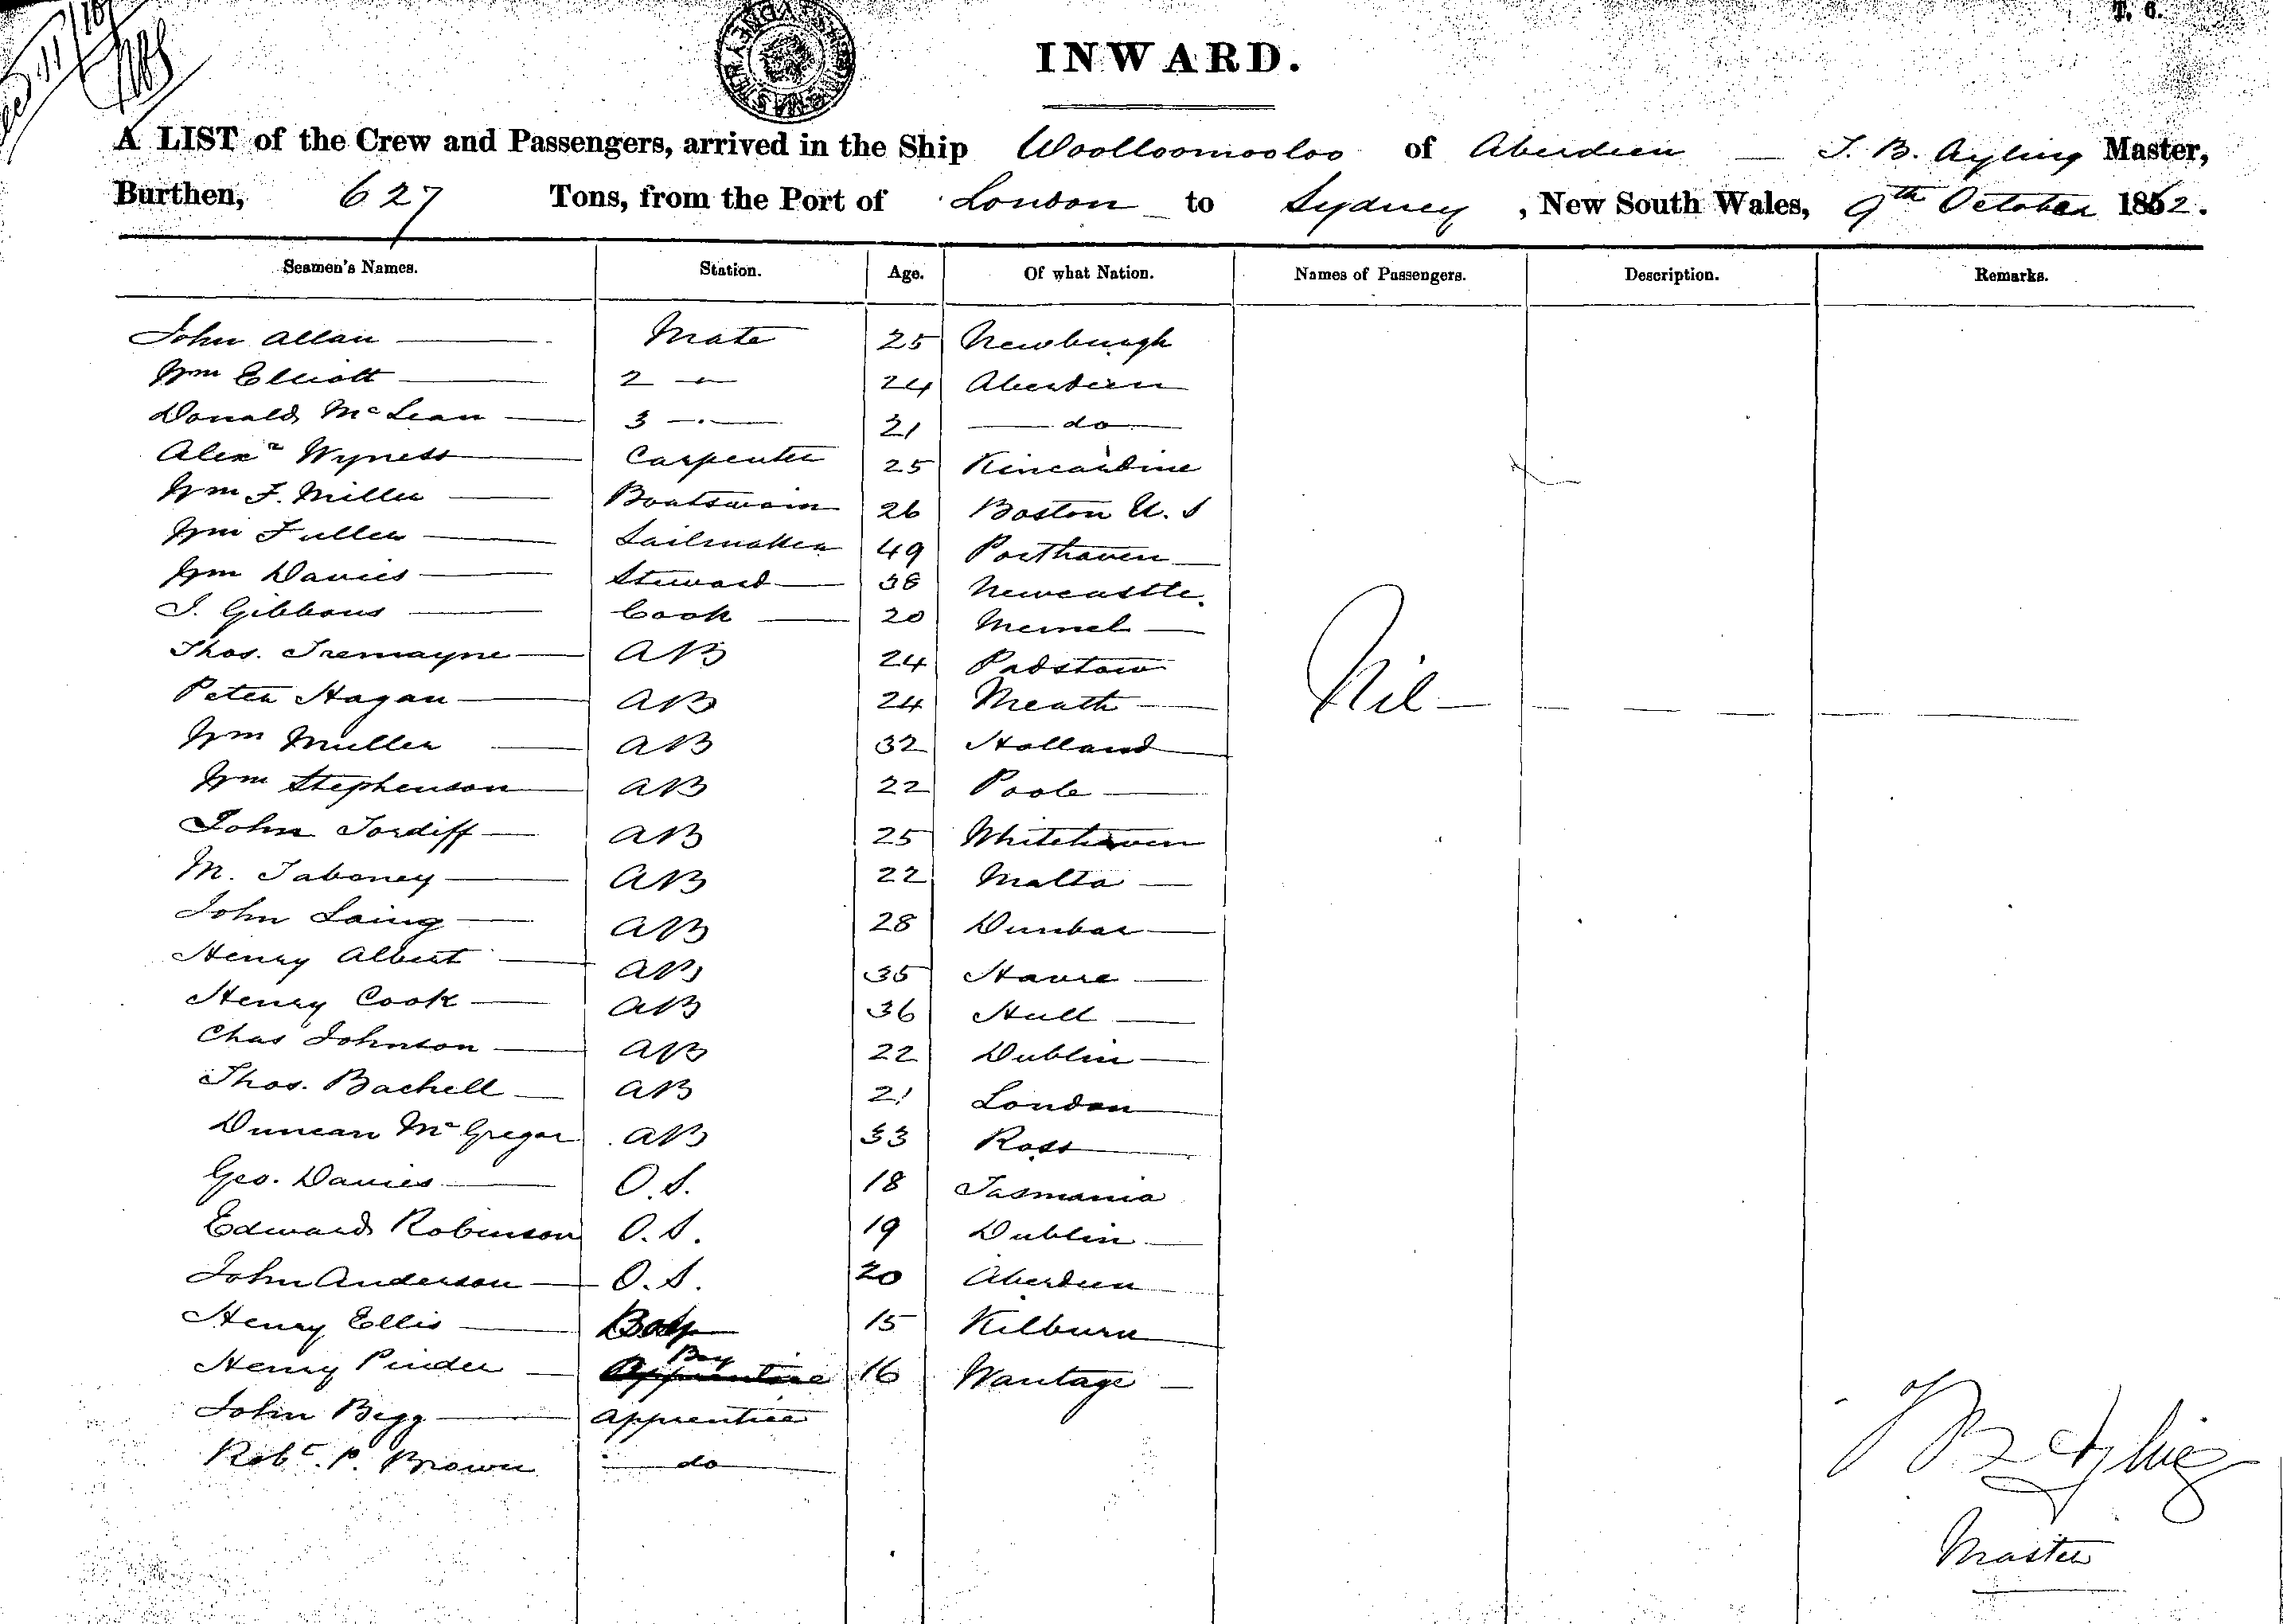 T. 6.
INWARD.
A LIST of the Crew and Passengers, arrived in the Ship Woolloomooloo of Aberdeen — J. B. Ayling Master,
Burthen, 627 Tons, from the Port of London to Sydney, New South Wales, 9th October 1862.
Seamen's Names. Station. Age. Of what Nation. Names of Passengers. Description. Remarks.
John Allan Mate 25 Newburgh
Wm Elliott 2 24 Aberdeen
Donald McLean 3 21 do
Alexr Wyness Carpenter 25 Kincardine
Wm F. Miller Boatswain 26 Boston U. S
Wm Fuller Sailmaker 49 Porthaven
Wm Davies Steward 38 Newcastle.
J. Gibbons Cook 20 Memel
Thos. Tremayne AB 24 Padstow
Peter Hagan AB 24 Meath
Nil
Wm Muller AB 32 Holland
Wm Stephenson AB 22 Poole
John Tordiff AB 25 Whitehaven
M. Taboney AB 22 Malta
John Laing AB 28 Dunbar
Henry Albert AB 35 Havre
Henry Cook AB 36 Hull
Chas Johnson AB 22 Dublin
Thos. Bachell AB 21 London
Duncan McGregor AB 33 Ross
Geo. Davies O.S. 18 Tasmania
Edward Robinson O.S. 19 Dublin
John Anderson O.S. 20 Aberdeen
Henry Ellis Boy 15 Kilburn
Henry Pinder Boy Apprentice 16 Wantage
John Begg Apprentice
Robt. P. Brown do
J B Ayling
Master